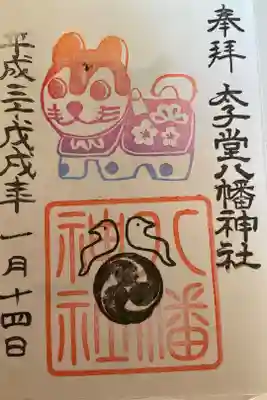 奉拝 太子堂八幡神社
八幡
神社
平成三十戊戌年 一月十四日